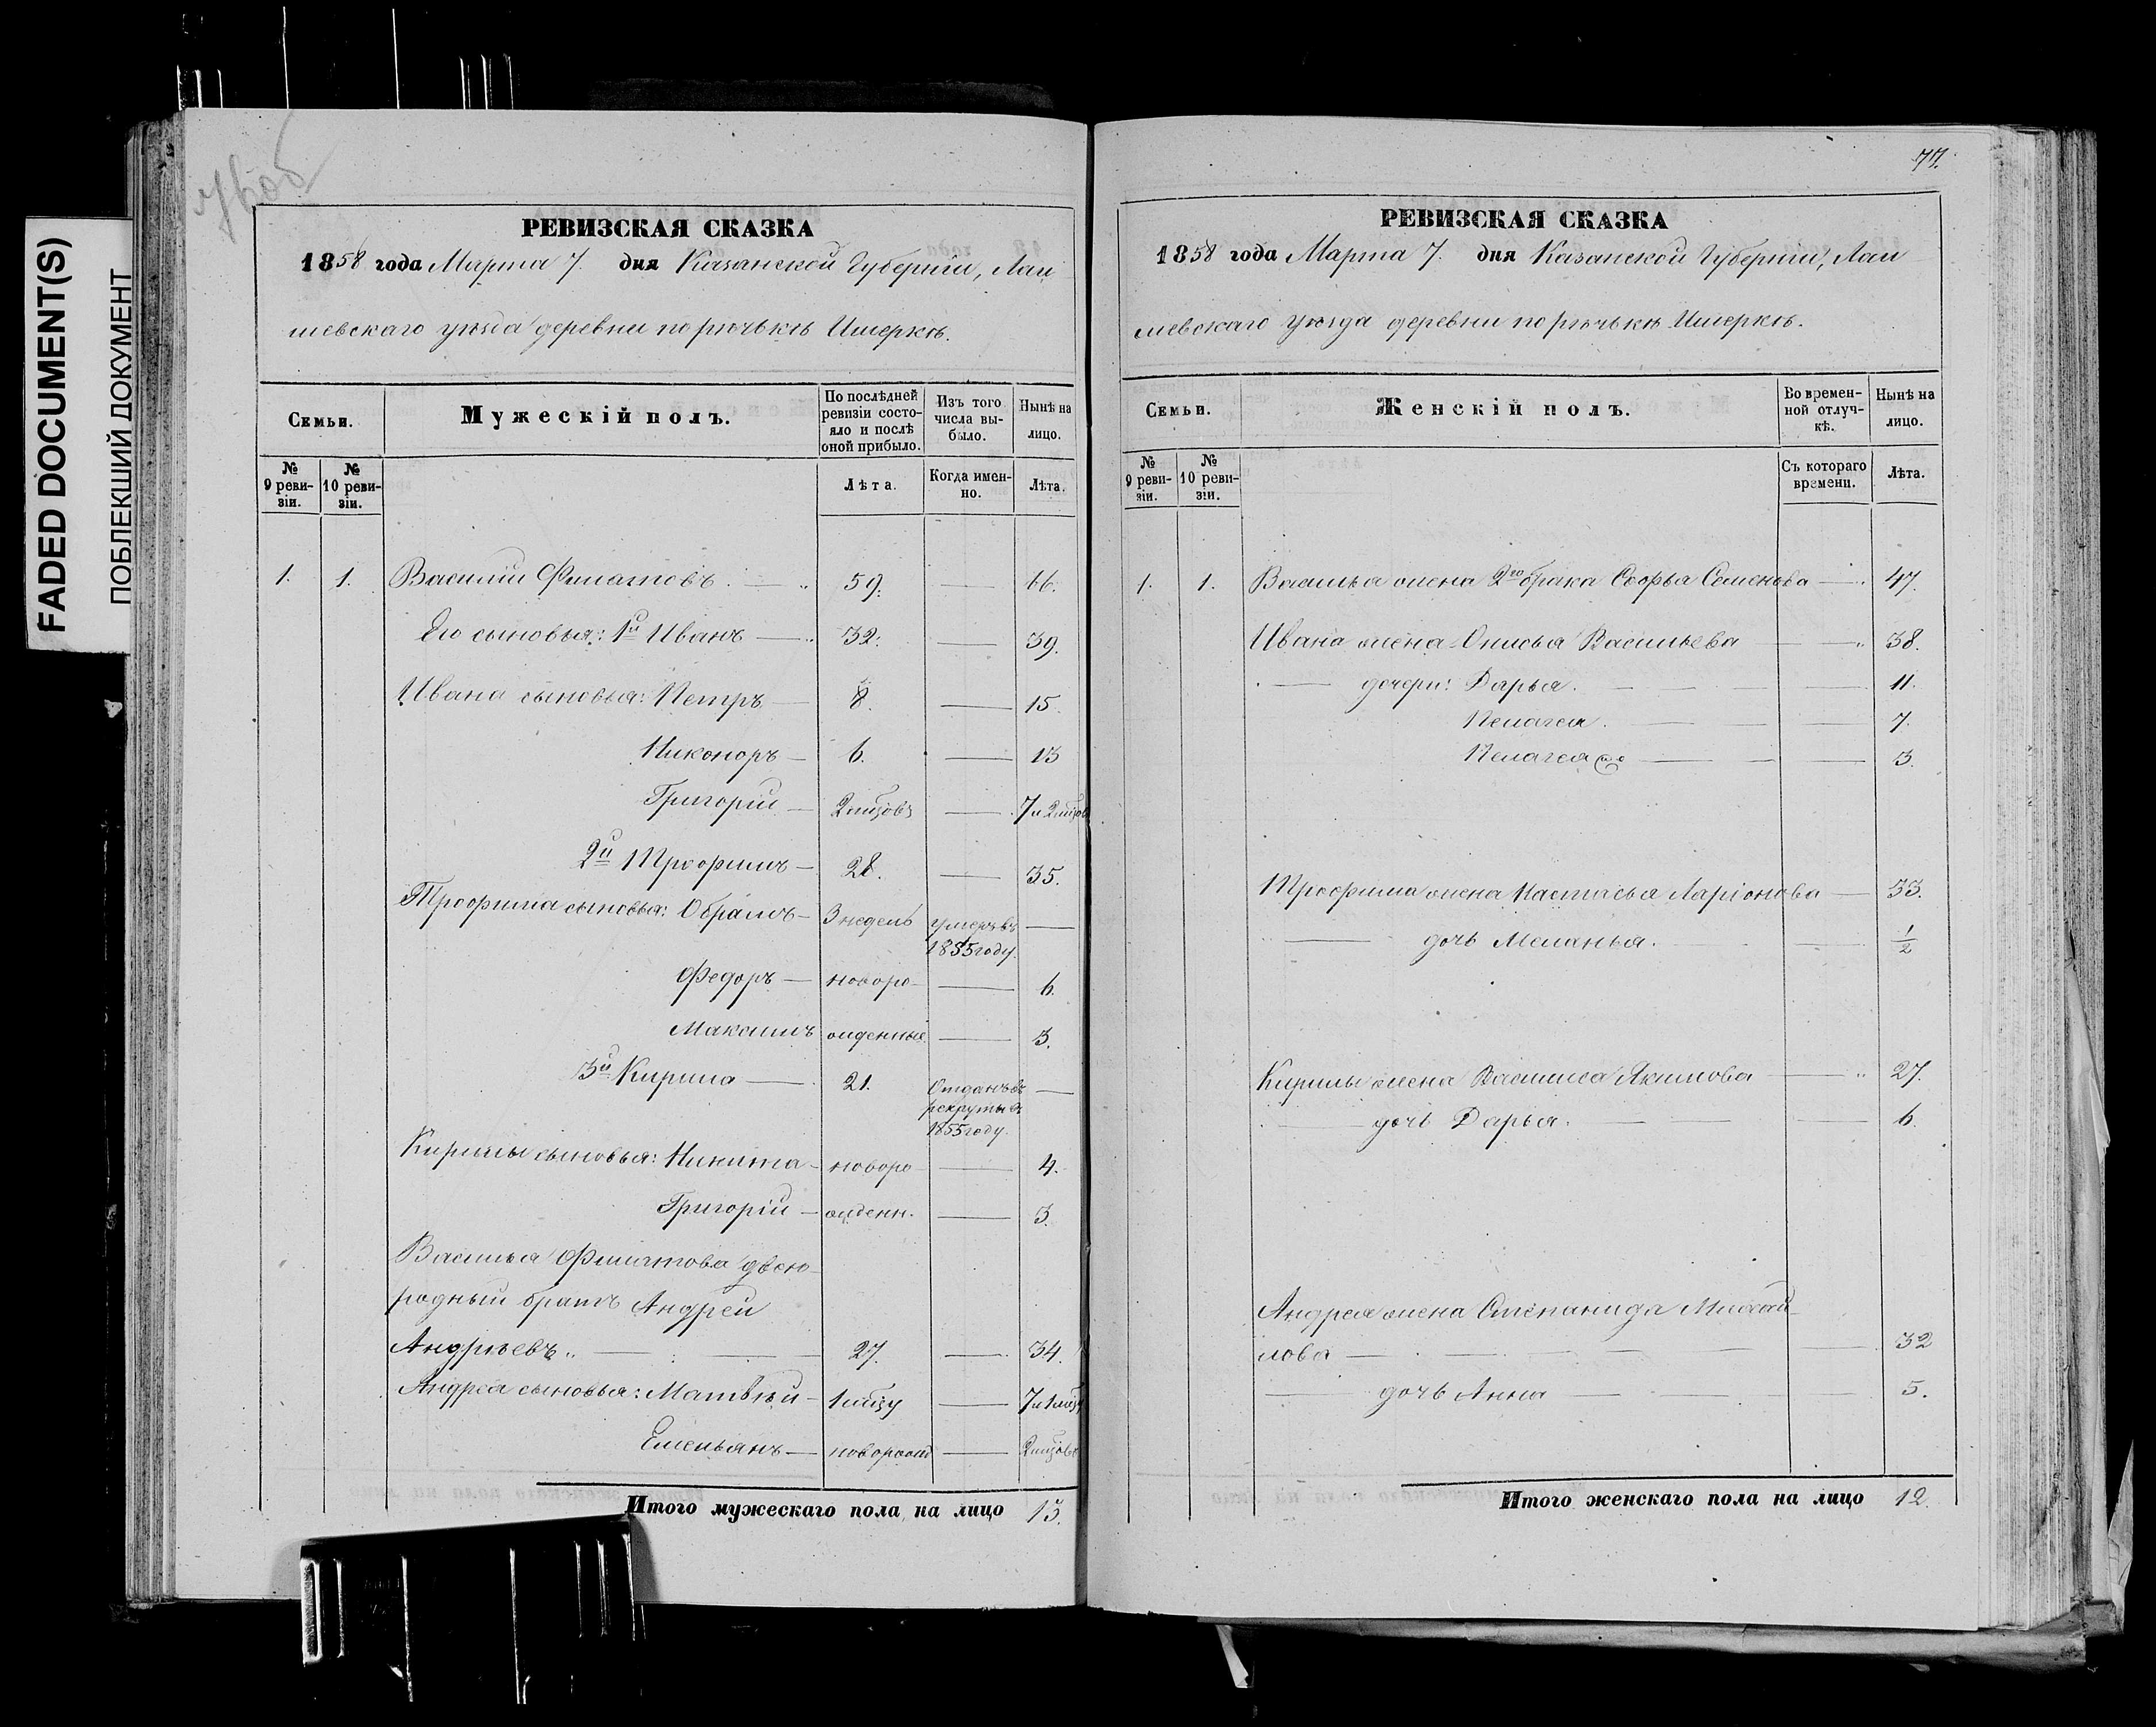 FADED DOCUMENT(S)
ПОБЛЕКШИЙ ДОКУМЕНТ
76об
РЕВИЗСКАЯ СКАЗКА
1858 года Марта 7. дня Казанской Губернiи, Лаи
шевскаго уѣзда деревни по рѣчькѣ Имеркѣ.
Семьи.
Мужескій полъ.
По послѣдней ревизіи состояло и послѣ оной прибыло.
Изъ того числа выбыло.
Нынѣ на лицо.
№ 9 ревизіи.
№ 10 ревизіи.
Лѣта.
Когда именно.
Лѣта.
1. 1. Василiй Филатовъ. — 59. — 66.
Его сыновья: 1й Иванъ — 32. — 39.
Ивана сыновья: Петръ — 8. — 15.
Никоноръ — 6. — 13
Григорiй — 2 мцовъ — 7 и 2 мцов
2й Трофимъ — 28. — 35.
Трофима сыновья: Обрамъ — 3 недель умеръ въ —
1855 году.
Федоръ — новоро — 6.
Максимъ жденные — 3.
3й Кирила — 21. Отданъ въ —
рекруты въ
1855 году.
Кирилы сыновья: Никита — новоро — 4.
Григорiй — жденн. — 3.
Василья Филатова двою-
родный братъ Андрей
Андрѣевъ — 27. — 34.
Андрея сыновья: Матвѣй — 1 мцу — 7 и 1 мцу
Емельянъ — новорожд — 2 мцовъ
Итого мужескаго пола на лицо 13.
77.
РЕВИЗСКАЯ СКАЗКА
1858 года Марта 7. дня Казанской Губернiи, Лаи
шевскаго уѣзда деревни по рѣчькѣ Имеркѣ.
Семьи.
Женскій полъ.
Во временной отлучкѣ.
Нынѣ на лицо.
№ 9 ревизіи.
№ 10 ревизіи.
Съ котораго времени.
Лѣта.
1. 1. Василья жена 2го брака Софья Семенова — 47.
Ивана жена Онисья Васильева — 38.
— дочери: Дарья. — 11.
Пелагея. — 7.
Пелагея — 3.
Трофима жена Настасья Ларiонова — 33.
— дочь Меланья. — 1/2
Кирилы жена Василиса Якимова — 27.
— дочь Дарья. — 6.
Андрея жена Степанида Михай-
лова — 32
— дочь Анна — 5.
Итого женскаго пола на лицо 12.